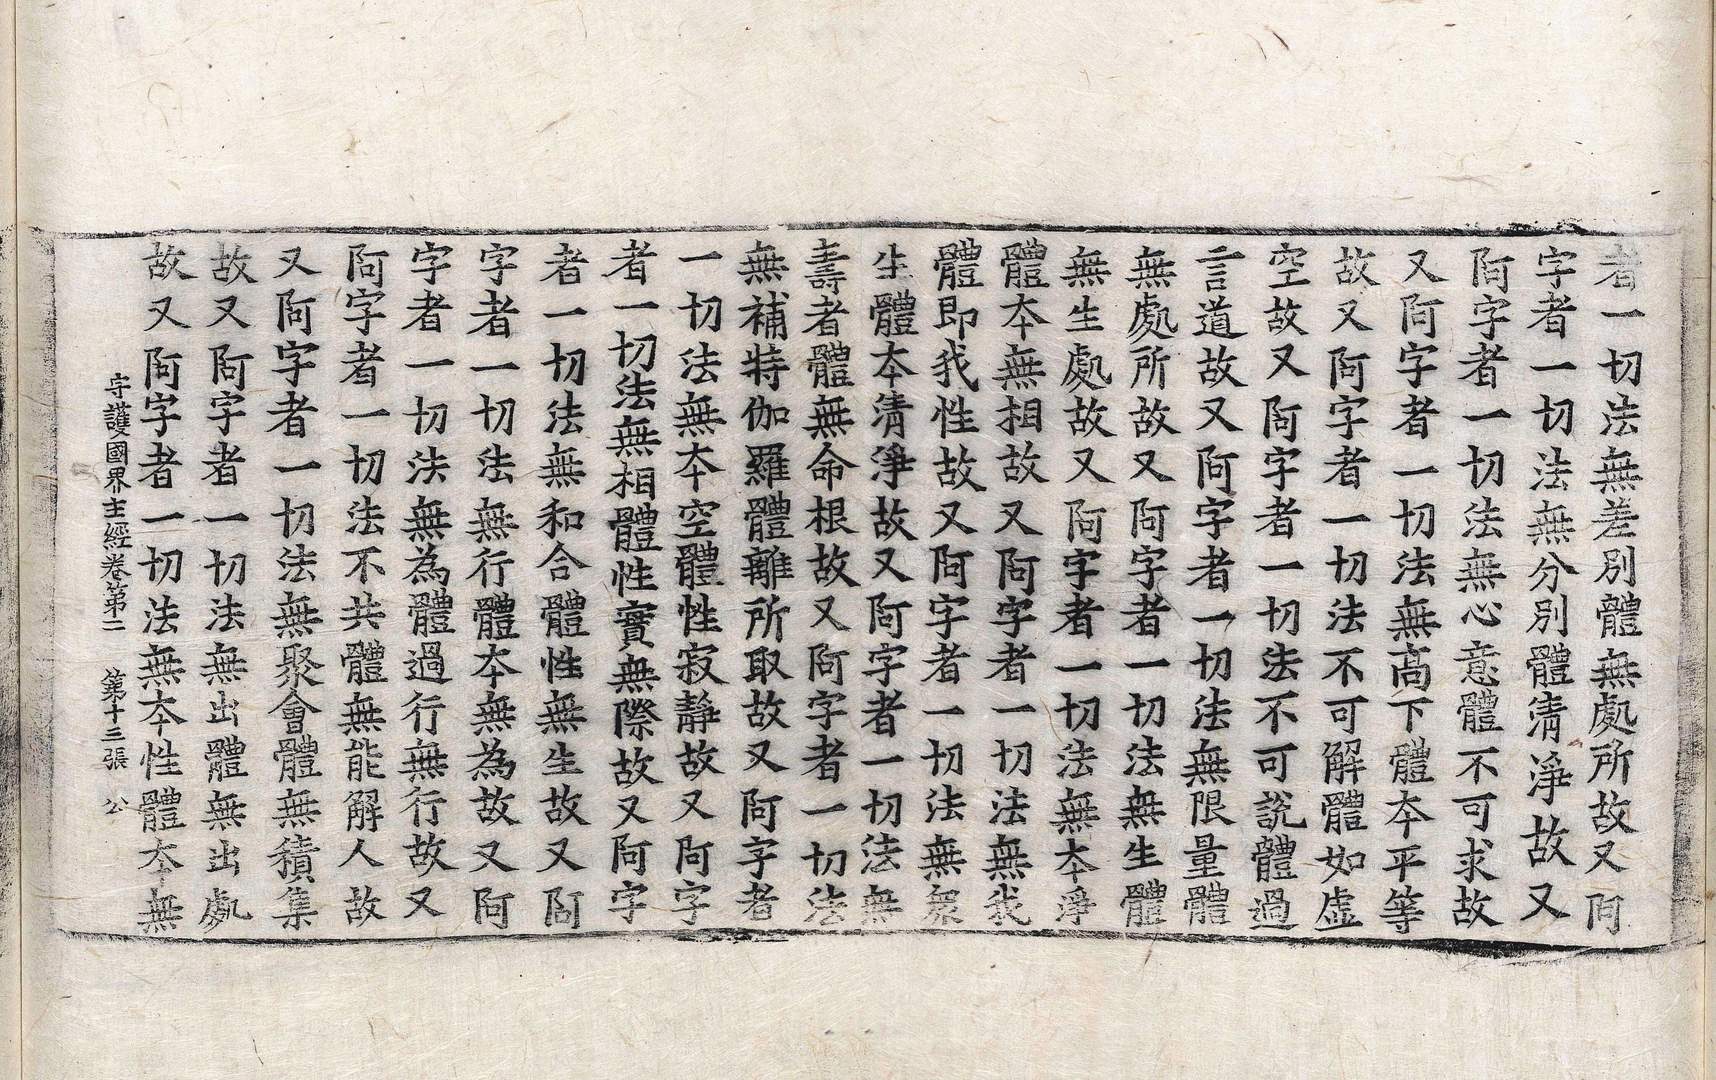 者一切法無差別體無處所故又阿
字者一切法無分別體清淨故又
阿字者一切法無心意體不可求故
又阿字者一切法無高下體本平等
故又阿字者一切法不可解體如虛
空故又阿字者一切法不可說體過
言道故又阿字者一切法無限量體
無處所故又阿字者一切法無生體
無生處故又阿字者一切法無本淨
體本無相故又阿字者一切法無我
體即我性故又阿字者一切法無衆
生體本清淨故又阿字者一切法無
壽者體無命根故又阿字者一切法
無補特伽羅體離所取故又阿字者
一切法無本空體性寂靜故又阿字
者一切法無相體性實無際故又阿字
者一切法無和合體性無生故又阿
字者一切法無行體本無為故又阿
字者一切法無為體過行無行故又
阿字者一切法不共體無能解人故
又阿字者一切法無聚會體無積集
故又阿字者一切法無出體無出處
故又阿字者一切法無本性體本無
守護國界主經卷第二 第十三張 公